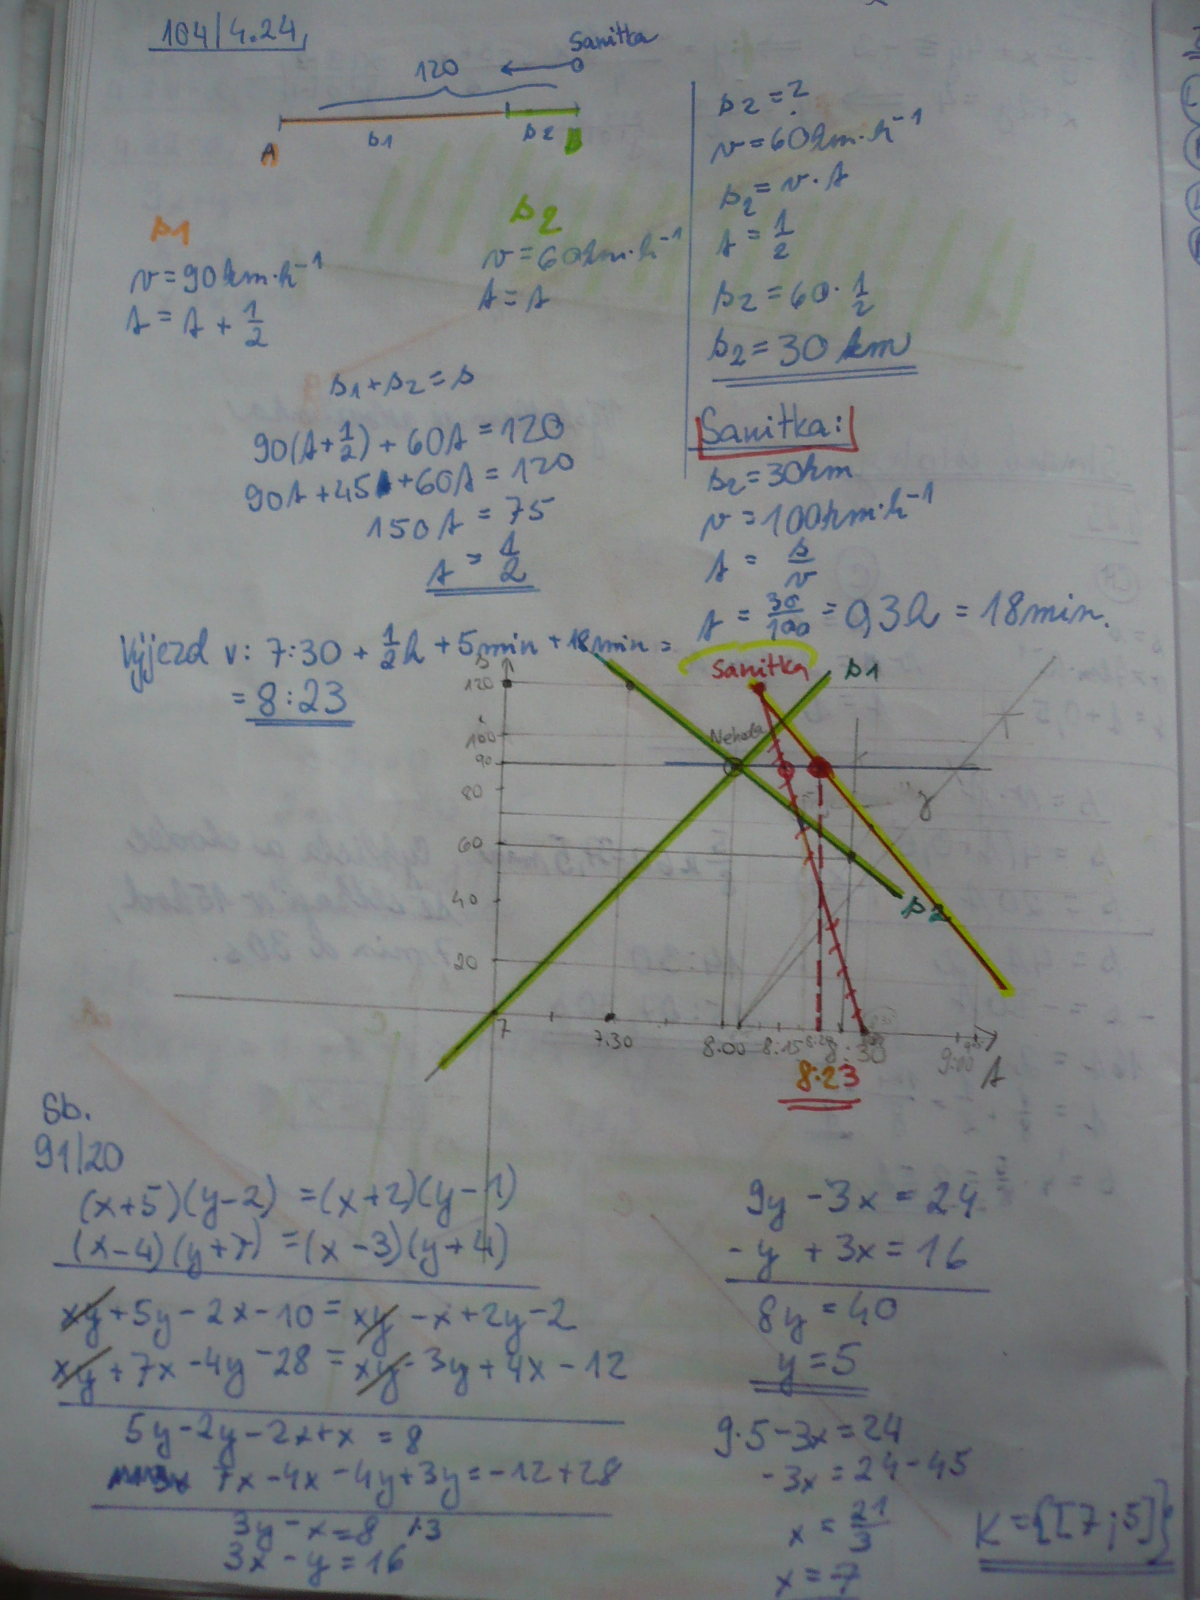 104/4.24,
Sanitka
120
A
s1
s2
B
s1
v = 90km·h⁻¹
t = t + 1/2
s2
v = 60km·h⁻¹
t = t
s1 + s2 = s
90(t + 1/2) + 60t = 120
90t + 45 + 60t = 120
150t = 75
t = 1/2
s2 = ?
v = 60km·h⁻¹
s2 = v·t
t = 1/2
s2 = 60·1/2
s2 = 30 km
Sanitka:
s2 = 30km
v = 100km·h⁻¹
t = s/v
t = 30/100 = 0,3h = 18min.
Výjezd v: 7:30 + 1/2h + 5min + 18min =
= 8:23
s
Sanitka
s1
120
100
Nehoda
90
80
60
40
s2
20
7
7:30
8:00
8:15
8:30
9:00
t
8:23
Sb.
91/20
(x+5)(y-2) = (x+2)(y-1)
(x-4)(y+7) = (x-3)(y+4)
xy + 5y - 2x - 10 = xy - x + 2y - 2
xy + 7x - 4y - 28 = xy - 3y + 4x - 12
5y - 2y - 2x + x = 8
7x - 4x - 4y + 3y = -12 + 28
3y - x = 8 /·3
3x - y = 16
9y - 3x = 24
-y + 3x = 16
8y = 40
y = 5
9·5 - 3x = 24
-3x = 24 - 45
x = 21/3
x = 7
K = {[7;5]}